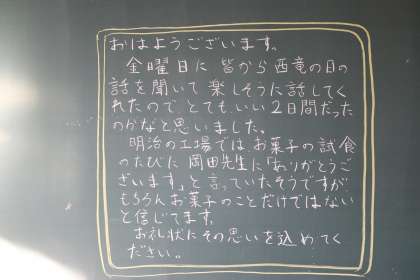 おはようございます。
金曜日に皆から西竜の日の
話を聞いて楽しそうに話してく
れたのでとてもいい2日間だった
のかなと思いました。
明治の工場ではお菓子の試食
のたびに岡田先生に「ありがとうご
ざいます」と言っていたそうですが
もちろんお菓子のことだけではない
と信じてます。
お礼状にその思いを込めてく
ださい。